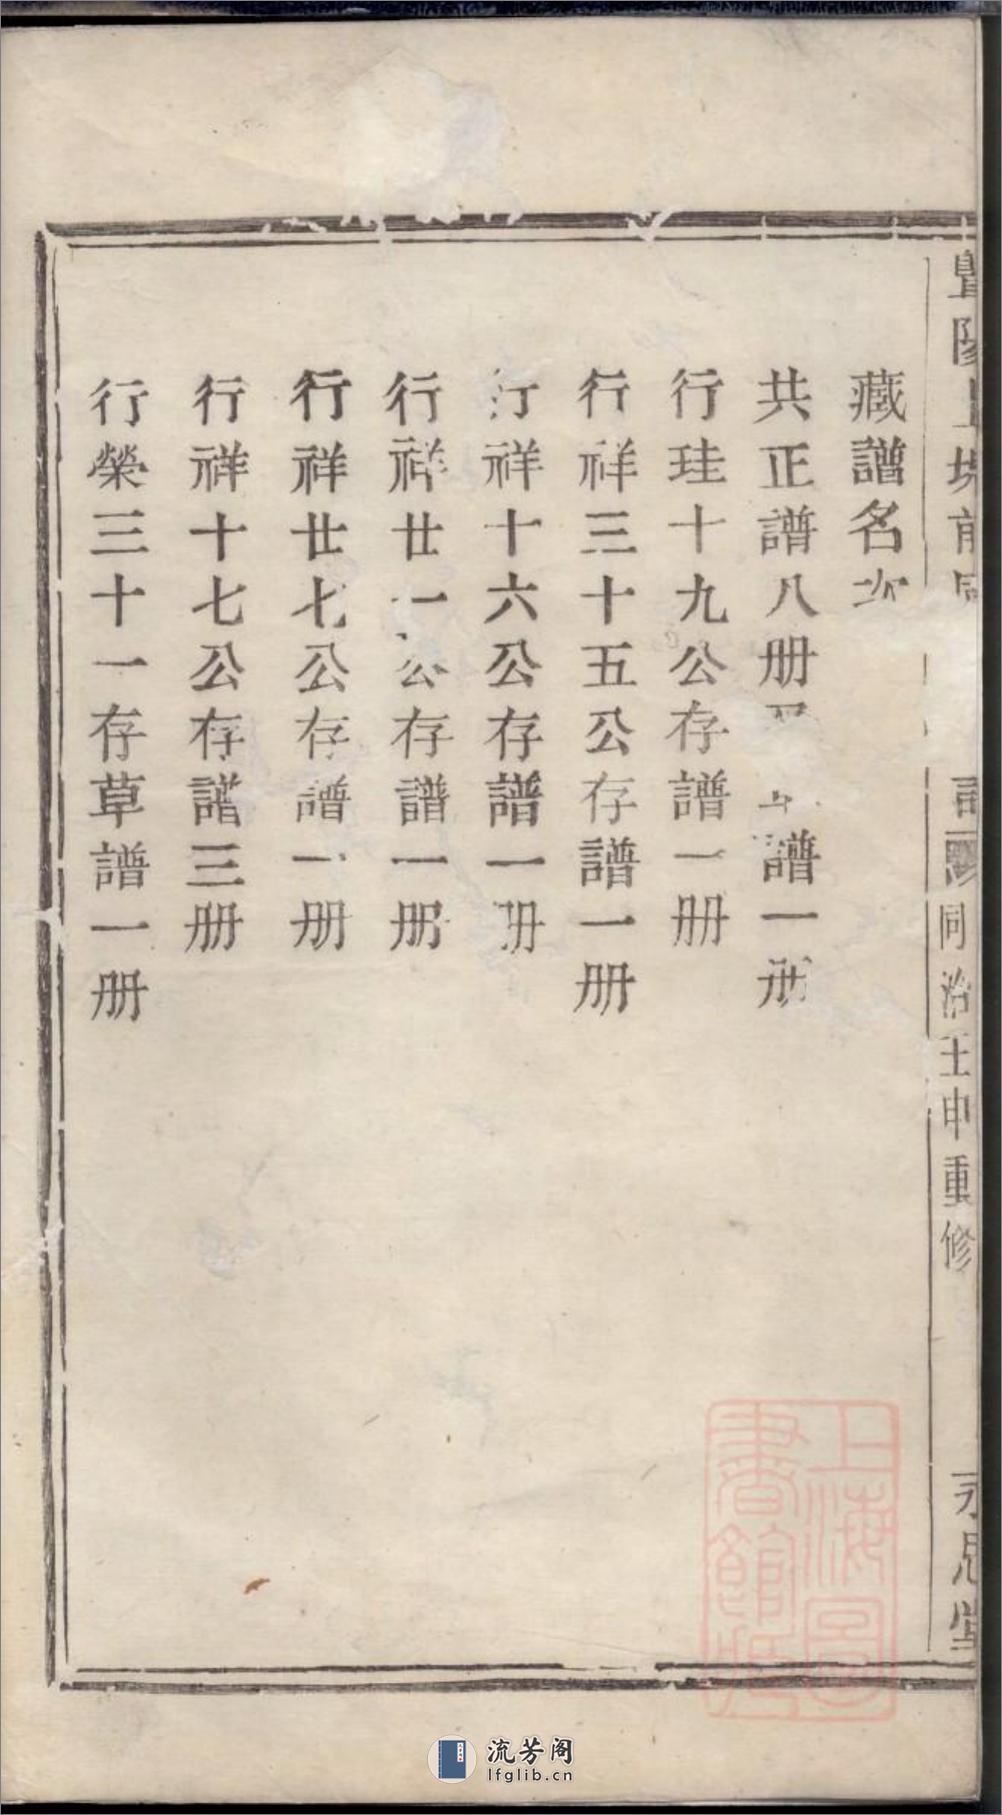 暨陽上
同治壬申重修
永思堂
藏譜名次
共正譜八册 譜一册
行珪十九公存譜一册
行祥三十五公存譜一册
行祥十六公存譜一册
行祥廿一公存譜一册
行祥廿七公存譜一册
行祥十七公存譜三册
行榮三十一存草譜一册
上海圖
書館藏
流芳阁
lfglib.cn